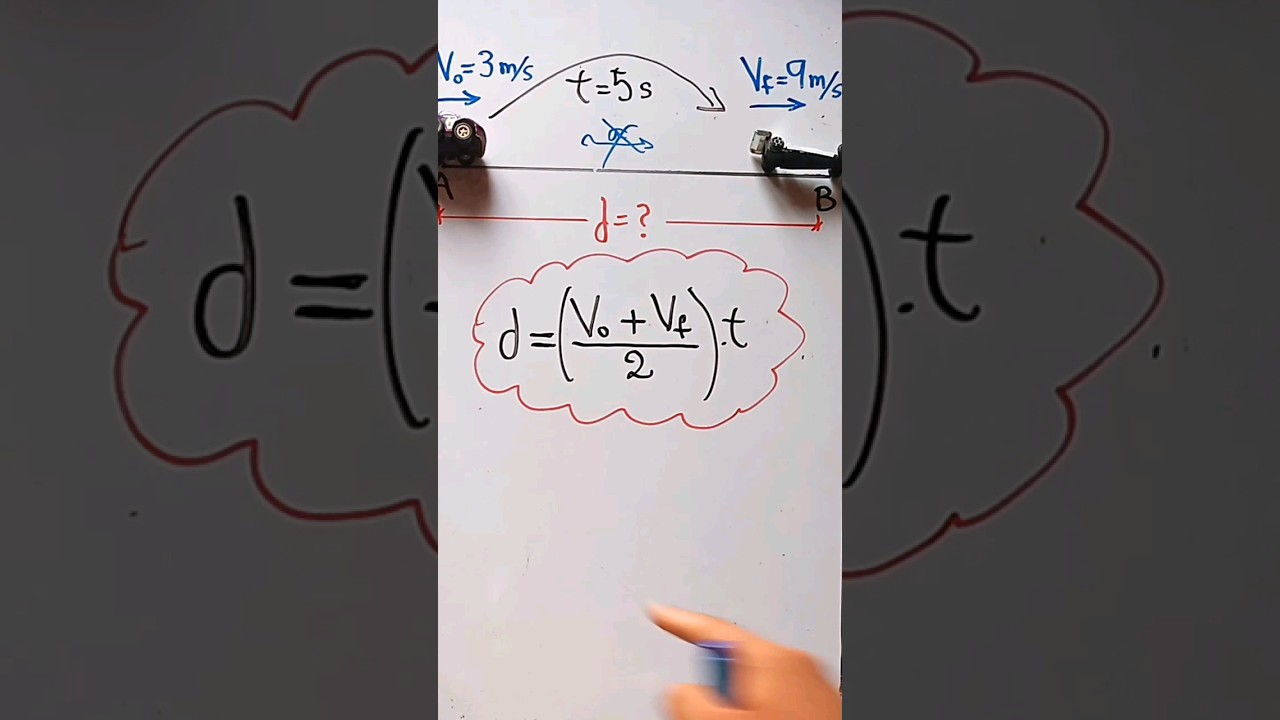 V₀=3m/s t=5s V_f=9m/s
A B
d=?
d=((V₀+V_f)/2).t